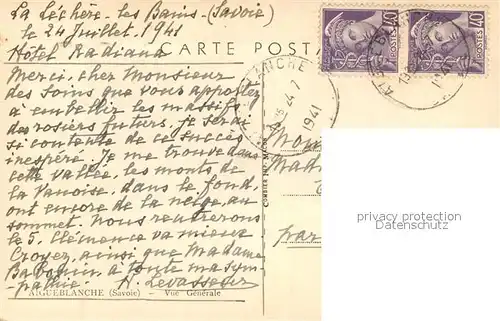 La Léchère-les Bains-(Savoie)
le 24 Juillet. 1941
Hôtel Radiana
CARTE POSTA
Merci, cher Monsieur
des soins que vous apportez
à embellir les massifs
des rosiers futurs, je serai
si contente de ce succès
inespéré. Je me trouve dans
cette vallée, les monts de
la Vanoise, dans le fond,
ont encore de la neige au
sommet. Nous rentrerons
le 5. Clémence va mieux
Croyez, ainsi que Madame
Babouin, à toute ma sym-
pathie. H. Levasseur
AIGUEBLANCHE (Savoie) — Vue Générale
POSTES 40
POSTES 40
BLANCHE
24.7
1941
Mon
Mad
par
privacy protection
Datenschutz